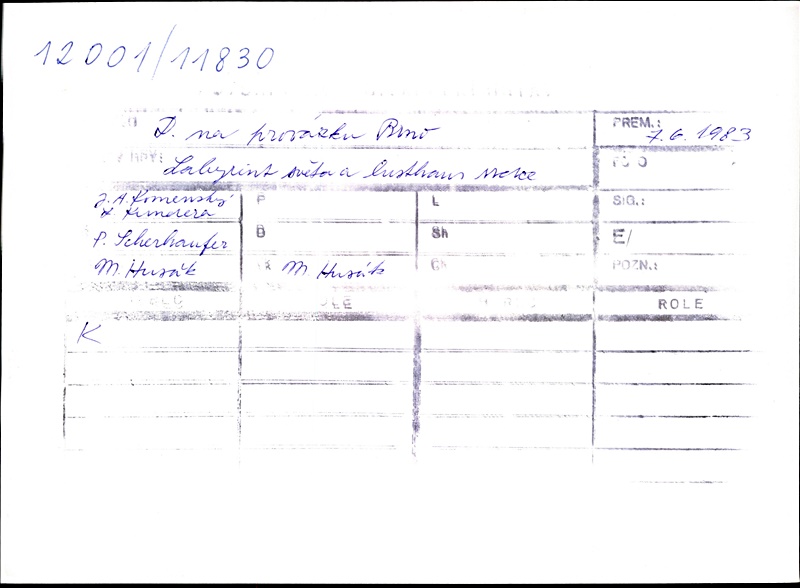 12001/11830
D. na provázku Brno
PREM.:
7.6.1983
Labyrint světa a lusthaus srdce
J. A. Komenský
P
L
SIG.:
P. Scherhaufer
B
Sh
E/
M. Husák
M. Husák
POZN.:
ROLE
K